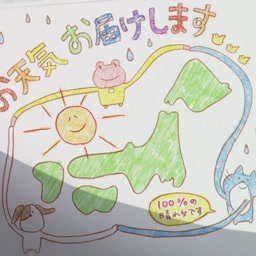 お天気 お届けします
100%の
晴れ女です